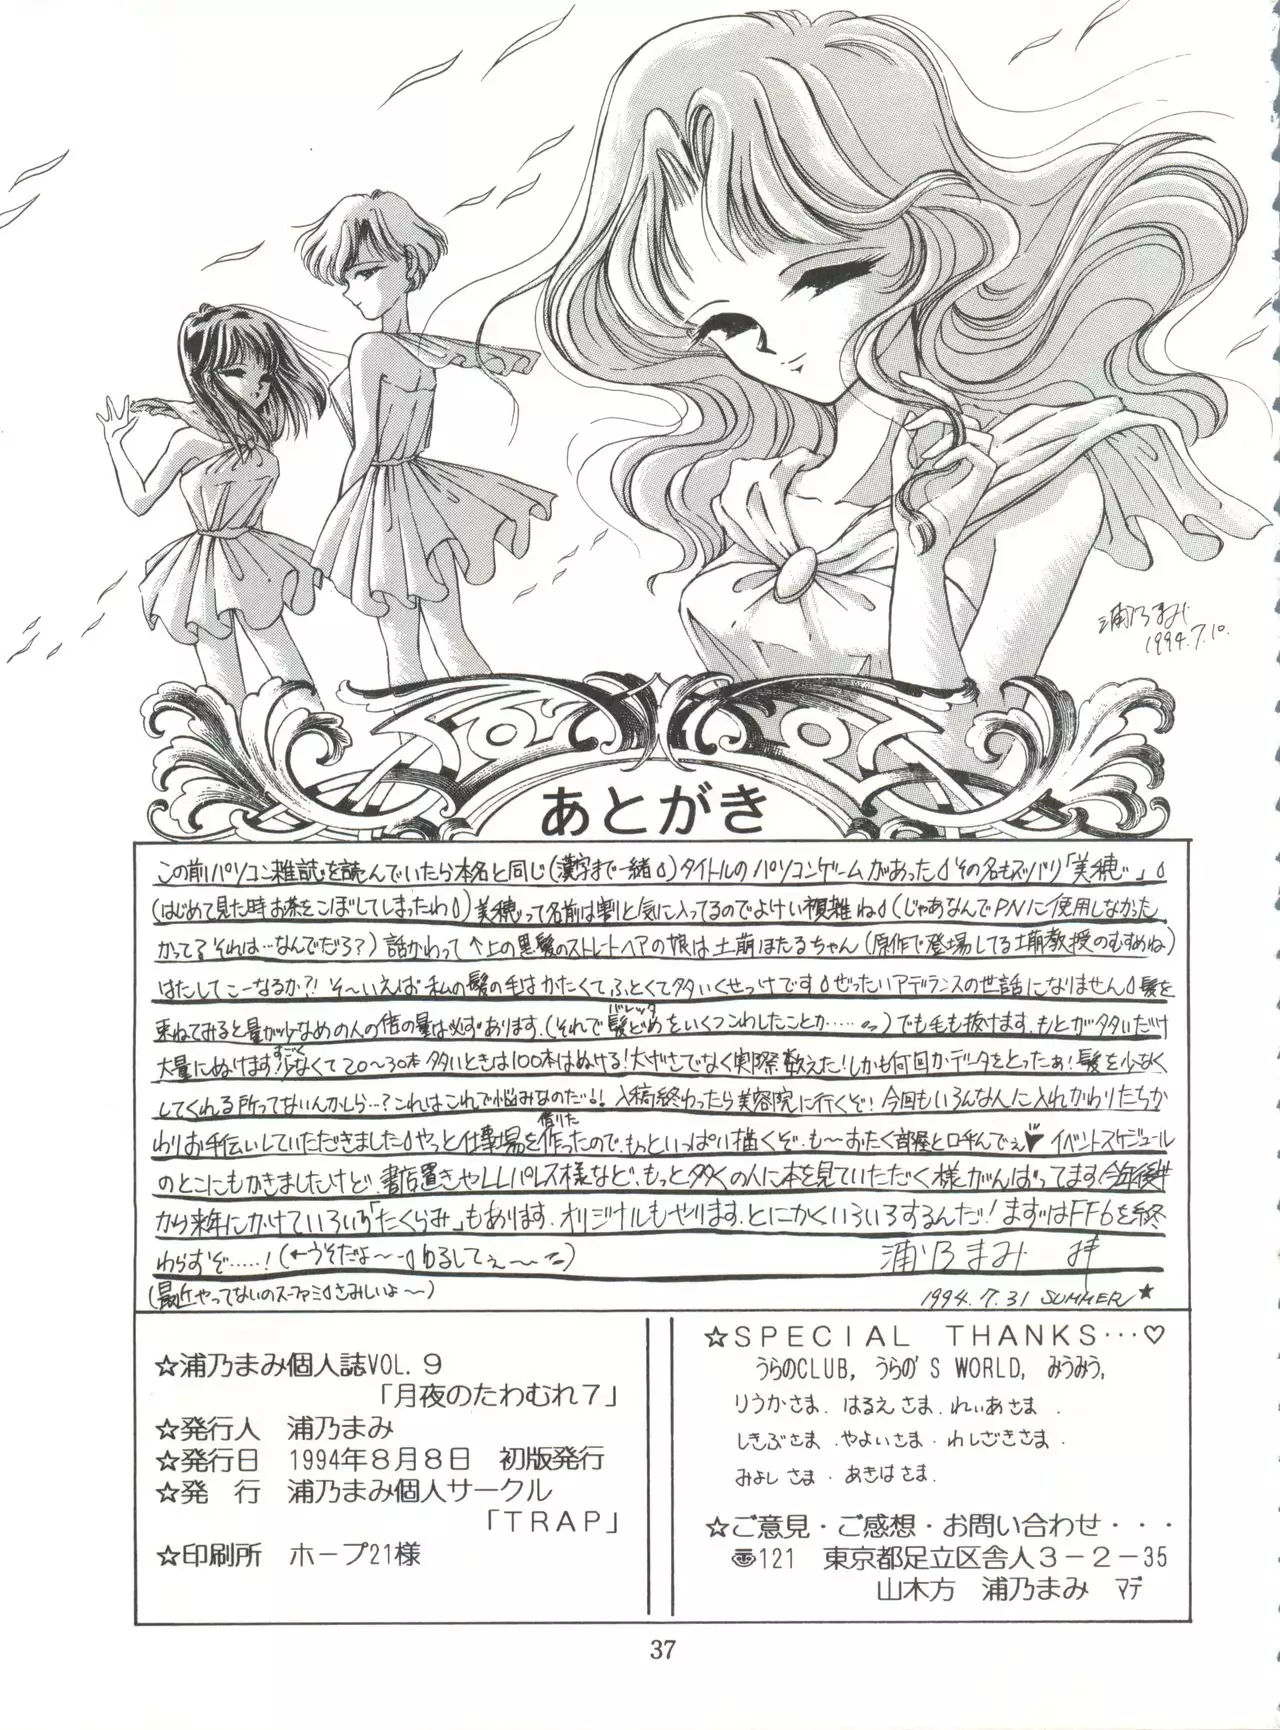 浦乃まみ
1994.7.10.
あとがき
この前パソコン雑誌を読んでいたら本名と同じ(漢字まで一緒)タイトルのパソコンゲームがあった その名もズバリ「美穂」
(はじめて見た時お茶をこぼしてしまったわ)美穂って名前は割と気に入ってるのでよけい複雑ね(じゃあなんでPNに使用しなかった
かってる それは…なんでだろ?)話かわって↑上の黒髪のストレートヘアの娘は土萠ほたるちゃん(原作で登場してる土萠教授のむすめね)
はたしてこーなるか?! そ〜いえば私の髪の毛はかたくてふとくて多いくせっけです ぜったいアデランスの世話になりません 髪を
束ねてみると量が少なめの人の倍の量は必ずあります.(それで髪どめ(バレッタ)をいくつこわしたことか……)でも毛も抜けます.もとが多いだけ
大量にぬけます!すごく少なくて20〜30本 多いときは100本はぬける!大げさでなく実際数えた!しかも何回かデータをとったぁ!髪を少なく
してくれる所ってないんかしら…?これはこれで悩みなのだる! 入稿終わったら美容院に行くぞ! 今回もいろんな人に入れかわりたちか
わりお手伝いしていただきました やっと仕事場を借りた作ったので.もっといっぱい描くぞ.も〜おたく部屋とロ干んでぇ イベントスケジュール
のとこにもかきましたけど.書店置きやLLパレス様など.もっと多くの人に本を見ていただく様がんばってます.今年後半
から来年にかけていろいろ「たくらみ」もあります.オリジナルもやります.とにかくいろいろするんだ!まずはFF6を終
わらすぞ……!(←うそだよ〜 ゆるしてぇ〜) 浦乃まみ 拝
(最近やってないのスーファミ さみしいよ〜) 1994.7.31 SUMMER★
☆浦乃まみ個人誌VOL.9
「月夜のたわむれ7」
☆発行人 浦乃まみ
☆発行日 1994年8月8日 初版発行
☆発 行 浦乃まみ個人サークル
「TRAP」
☆印刷所 ホープ21様
☆SPECIAL THANKS…♡
うらのCLUB, うらの'S WORLD, みうみう,
りうかさま.はるえさま.れいあさま.
しきぶさま.やよいさま.わしざきさま.
みよしさま.あきはさま.
☆ご意見・ご感想・お問い合わせ・・・
〠121 東京都足立区舎人3-2-35
山木方 浦乃まみ マデ
37